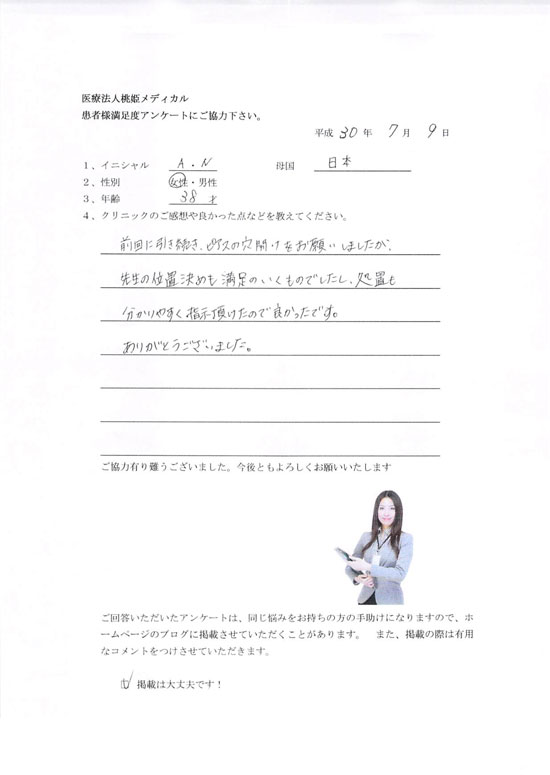 医療法人桃姫メディカル
患者様満足度アンケートにご協力下さい。
平成 30 年 7 月 9 日
1、イニシャル A・N 母国 日本
2、性別 女性・男性
3、年齢 38才
4、クリニックのご感想や良かった点などを教えてください。
前回に引き続き、ピアスの穴開けをお願いしましたが、
先生の位置決めも満足のいくものでしたし、処置も
分かりやすく指示頂けたので良かったです。
ありがとうございました。
ご協力有り難うございました。今後ともよろしくお願いいたします
ご回答いただいたアンケートは、同じ悩みをお持ちの方の手助けになりますので、ホ
ームページのブログに掲載させていただくことがあります。 また、掲載の際は有用
なコメントをつけさせていただきます。
☑ 掲載は大丈夫です！